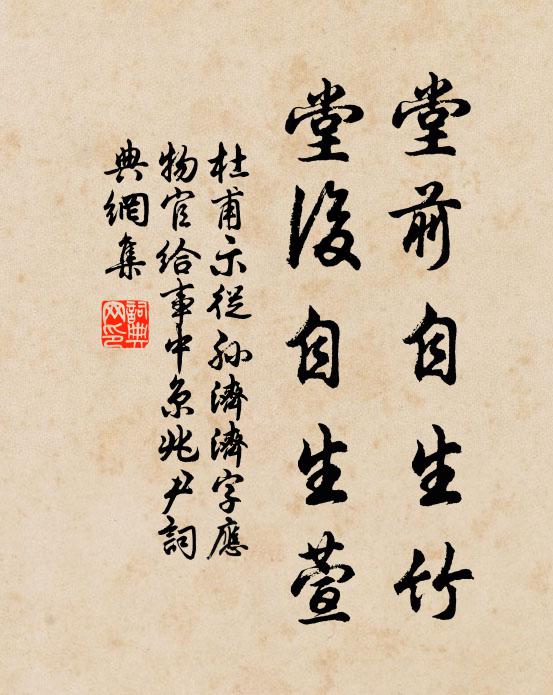 堂前自生竹
堂後自生萱
杜甫示從孫濟濟字應
物官給事中京兆尹詞
典網集
詞典
网印